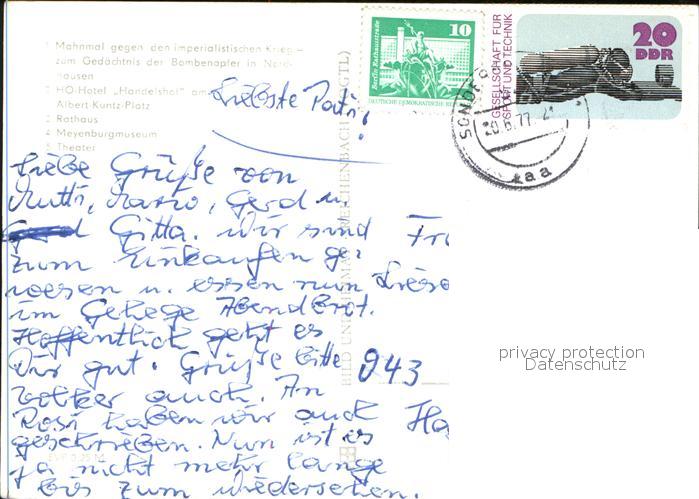 1 Mahnmal gegen den imperialistischen Krieg –
zum Gedächtnis der Bombenopfer in Nord-
hausen
2 HO-Hotel „Handelshof" am
Albert-Kuntz-Platz
3 Rathaus
4 Meyenburgmuseum
5 Theater
10
Berlin, Rathausstraße
DEUTSCHE DEMOKRATISCHE RE
GESELLSCHAFT FÜR
SPORT UND TECHNIK
20
DDR
SONDE
20.6.77
aa
Liebste Patin!
Liebe Grüße von
Mutti, Mario, Gerd u.
Gitta. Wir sind
zum Einkaufen ge-
wesen u. essen nun
im Gehege Abendbrot.
Hoffentlich geht es
Dir gut. Grüße bitte
Volker auch. An
Rosi haben wir auch
geschrieben. Nun ist es
ja nicht mehr lange
bis zum Wiedersehen.
Fr
943
Ha
BILD UND HEIMAT REICHENBACH (VOGTL)
privacy protection
Datenschutz